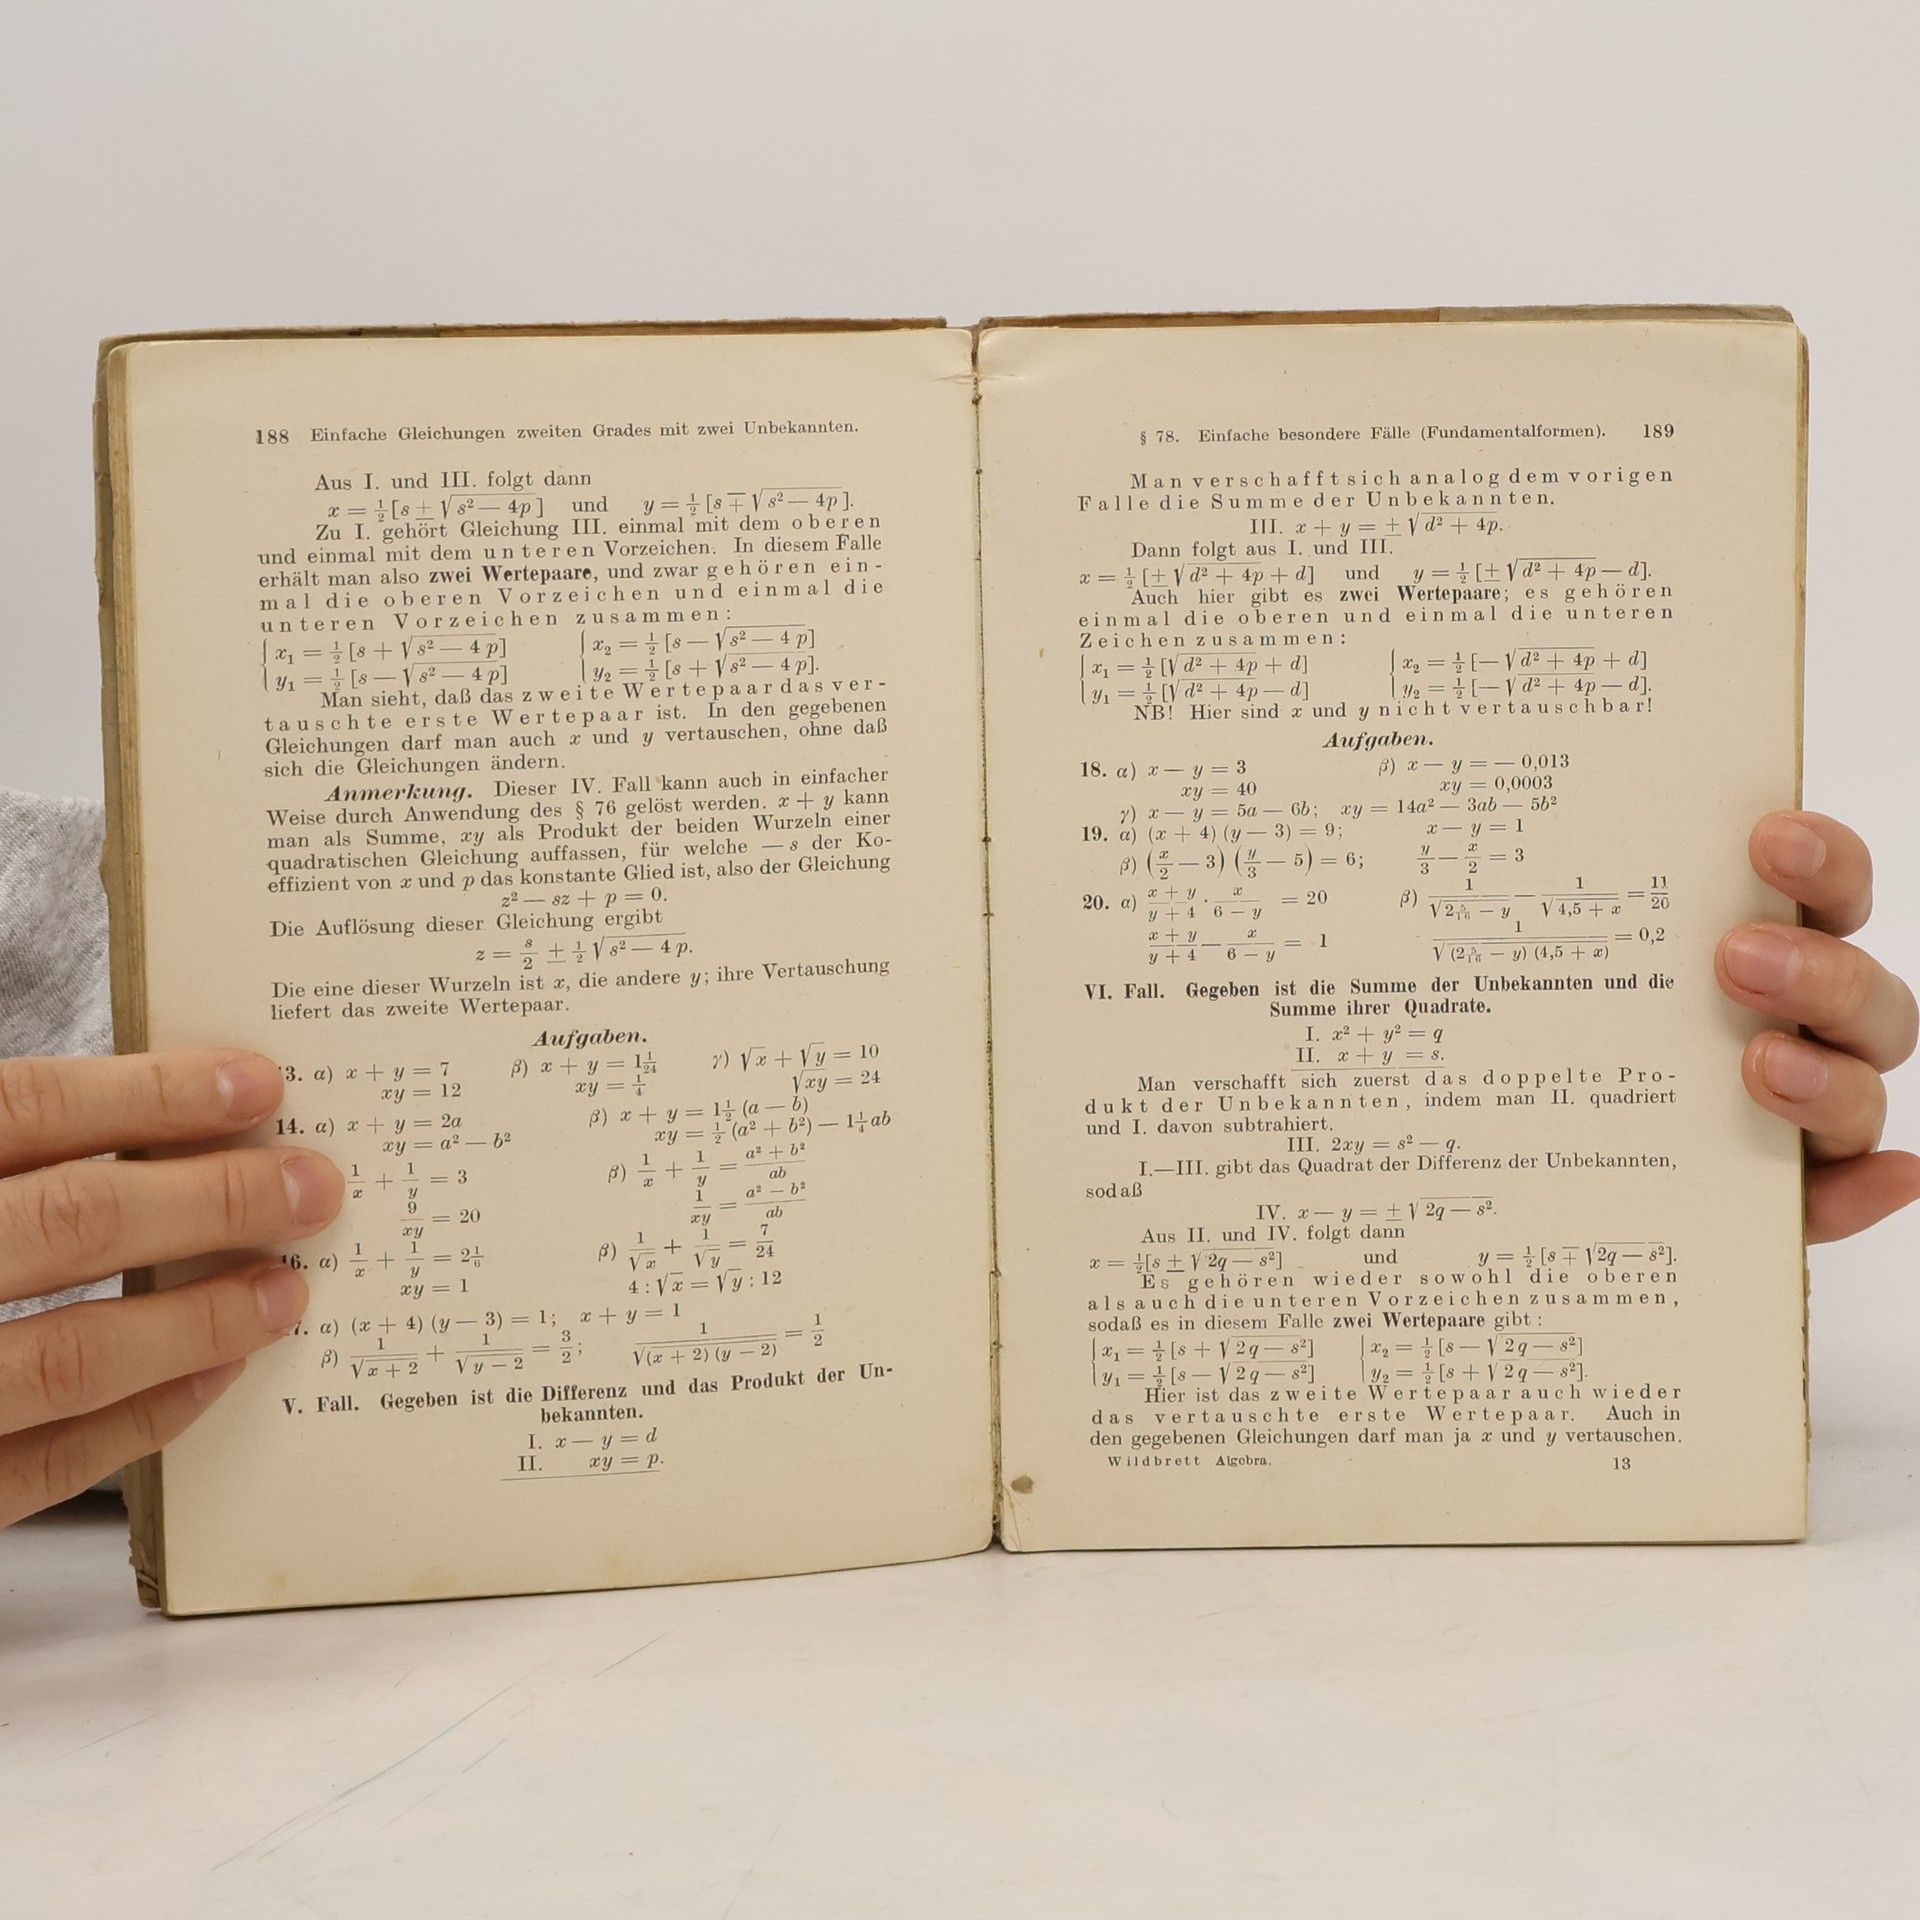 188 Einfache Gleichungen zweiten Grades mit zwei Unbekannten.
Aus I. und III. folgt dann
x = ½ [s ± √(s² — 4p)] und y = ½ [s ∓ √(s² — 4p)].
Zu I. gehört Gleichung III. einmal mit dem oberen
und einmal mit dem unteren Vorzeichen. In diesem Falle
erhält man also zwei Wertepaare, und zwar gehören ein-
mal die oberen Vorzeichen und einmal die
unteren Vorzeichen zusammen:
{ x₁ = ½ [s + √(s² — 4p)] { x₂ = ½ [s — √(s² — 4p)]
{ y₁ = ½ [s — √(s² — 4p)] { y₂ = ½ [s + √(s² — 4p)].
Man sieht, daß das zweite Wertepaar das ver-
tauschte erste Wertepaar ist. In den gegebenen
Gleichungen darf man auch x und y vertauschen, ohne daß
sich die Gleichungen ändern.
Anmerkung. Dieser IV. Fall kann auch in einfacher
Weise durch Anwendung des § 76 gelöst werden. x + y kann
man als Summe, xy als Produkt der beiden Wurzeln einer
quadratischen Gleichung auffassen, für welche — s der Ko-
effizient von x und p das konstante Glied ist, also der Gleichung
z² — sz + p = 0.
Die Auflösung dieser Gleichung ergibt
z = s/2 ± ½ √(s² — 4p).
Die eine dieser Wurzeln ist x, die andere y; ihre Vertauschung
liefert das zweite Wertepaar.
Aufgaben.
3. α) x + y = 7 β) x + y = 1 1/24 γ) √x + √y = 10
xy = 12 xy = ¼ √(xy) = 24
14. α) x + y = 2a β) x + y = 1½ (a — b)
xy = a² — b² xy = ½ (a² + b²) — 1¼ ab
1/x + 1/y = 3 β) 1/x + 1/y = (a² + b²)/ab
9/xy = 20 1/xy = (a² — b²)/ab
16. α) 1/x + 1/y = 2 1/6 β) 1/√x + 1/√y = 7/24
xy = 1 4 : √x = √y : 12
7. α) (x + 4) (y — 3) = 1; x + y = 1
β) 1/√(x + 2) + 1/√(y — 2) = 3/2; 1/√((x + 2) (y — 2)) = 1/2
V. Fall. Gegeben ist die Differenz und das Produkt der Un-
bekannten.
I. x — y = d
II. xy = p.
§ 78. Einfache besondere Fälle (Fundamentalformen). 189
Man verschafft sich analog dem vorigen
Falle die Summe der Unbekannten.
III. x + y = ± √(d² + 4p).
Dann folgt aus I. und III.
x = ½ [± √(d² + 4p) + d] und y = ½ [± √(d² + 4p) — d].
Auch hier gibt es zwei Wertepaare; es gehören
einmal die oberen und einmal die unteren
Zeichen zusammen:
{ x₁ = ½ [√(d² + 4p) + d] { x₂ = ½ [— √(d² + 4p) + d]
{ y₁ = ½ [√(d² + 4p) — d] { y₂ = ½ [— √(d² + 4p) — d].
NB! Hier sind x und y nicht vertauschbar!
Aufgaben.
18. α) x — y = 3 β) x — y = — 0,013
xy = 40 xy = 0,0003
γ) x — y = 5a — 6b; xy = 14a² — 3ab — 5b²
19. α) (x + 4) (y — 3) = 9; x — y = 1
β) (x/2 — 3) (y/3 — 5) = 6; y/3 — x/2 = 3
20. α) (x + y)/(y + 4) · x/(6 — y) = 20 β) 1/√(2 5/16 — y) — 1/√(4,5 + x) = 11/20
(x + y)/(y + 4) — x/(6 — y) = 1 1/√((2 5/16 — y) (4,5 + x)) = 0,2
VI. Fall. Gegeben ist die Summe der Unbekannten und die
Summe ihrer Quadrate.
I. x² + y² = q
II. x + y = s.
Man verschafft sich zuerst das doppelte Pro-
dukt der Unbekannten, indem man II. quadriert
und I. davon subtrahiert.
III. 2xy = s² — q.
I.—III. gibt das Quadrat der Differenz der Unbekannten,
sodaß
IV. x — y = ± √(2q — s²).
Aus II. und IV. folgt dann
x = ½ [s ± √(2q — s²)] und y = ½ [s ∓ √(2q — s²)].
Es gehören wieder sowohl die oberen
als auch die unteren Vorzeichen zusammen,
sodaß es in diesem Falle zwei Wertepaare gibt:
{ x₁ = ½ [s + √(2q — s²)] { x₂ = ½ [s — √(2q — s²)]
{ y₁ = ½ [s — √(2q — s²)] { y₂ = ½ [s + √(2q — s²)].
Hier ist das zweite Wertepaar auch wieder
das vertauschte erste Wertepaar. Auch in
den gegebenen Gleichungen darf man ja x und y vertauschen.
Wildbrett Algebra. 13